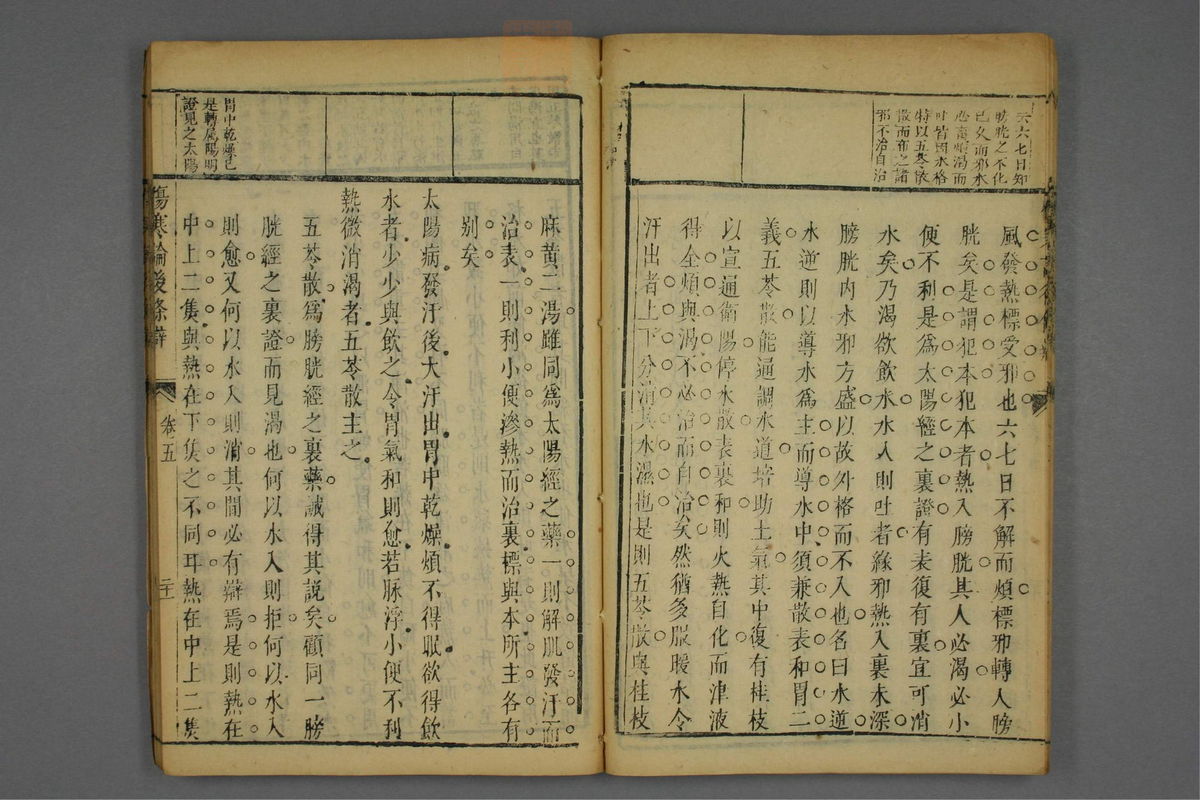 天六七日知
膀胱之不化
已久而邪水
必畜煩渴而
吐皆因水格
特以五苓散
散而布之諸
邪不治自治
風發熱標受邪也六七日不解而煩標邪轉入膀
胱矣是謂犯本犯本者熱入膀胱其人必渴必小
便不利是為太陽經之裏證有表復有裏宜可消
水矣乃渴欲飲水水入則吐者緣邪熱入裏未深
膀胱內水邪方盛以故外格而不入也名曰水逆
水逆則以導水為主而導水中須兼散表和胃二
義五苓散能通調水道培助土氣其中復有桂枝
以宣通衛陽停水散表裏和則火熱自化而津液
得全煩與渴不必治而自治矣然猶多服暖水令
汗出者上下分消其水濕也是則五苓散與桂枝
胃中乾燥已
是轉属陽明
證見之太陽
麻黃二湯雖同為太陽經之藥一則解肌發汗而
治表一則利小便滲熱而治裏標與本所主各有
别矣
太陽病發汗後大汗出胃中乾燥煩不得眠欲得飲
水者少少與飲之令胃氣和則愈若脉浮小便不利
熱微消渴者五苓散主之
五苓散為膀胱經之裏藥誠得其説矣顧同一膀
胱經之裏證而見渴也何以水入則拒何以水入
則愈又何以水入則消其間必有辯焉是則熱在
中上二焦與熱在下焦之不同耳熱在中上二焦
傷寒論後條辯
卷五
二十